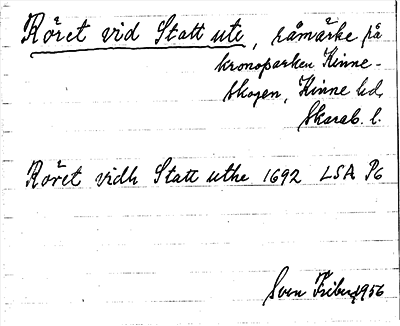 Röret vid Statt ute, råmärke på
kronoparken Kinne-
skogen, Kinne hd,
Skarab. l.
Röret vidh Statt uthe 1692 LSA P6
Sven Friberg 1956